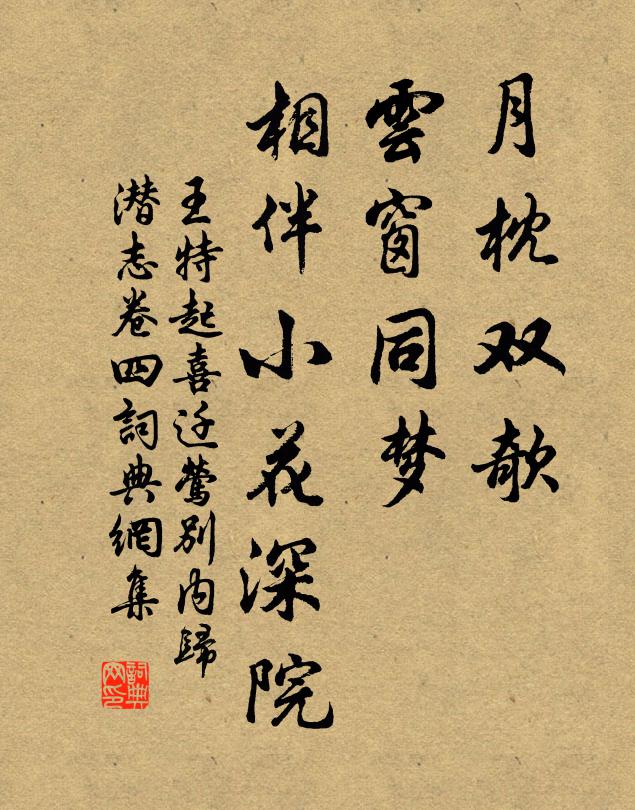 月枕双欹
雲窗同梦
相伴小花深院
王特起喜迁莺别内歸
潜志卷四詞典網集
詞典网印